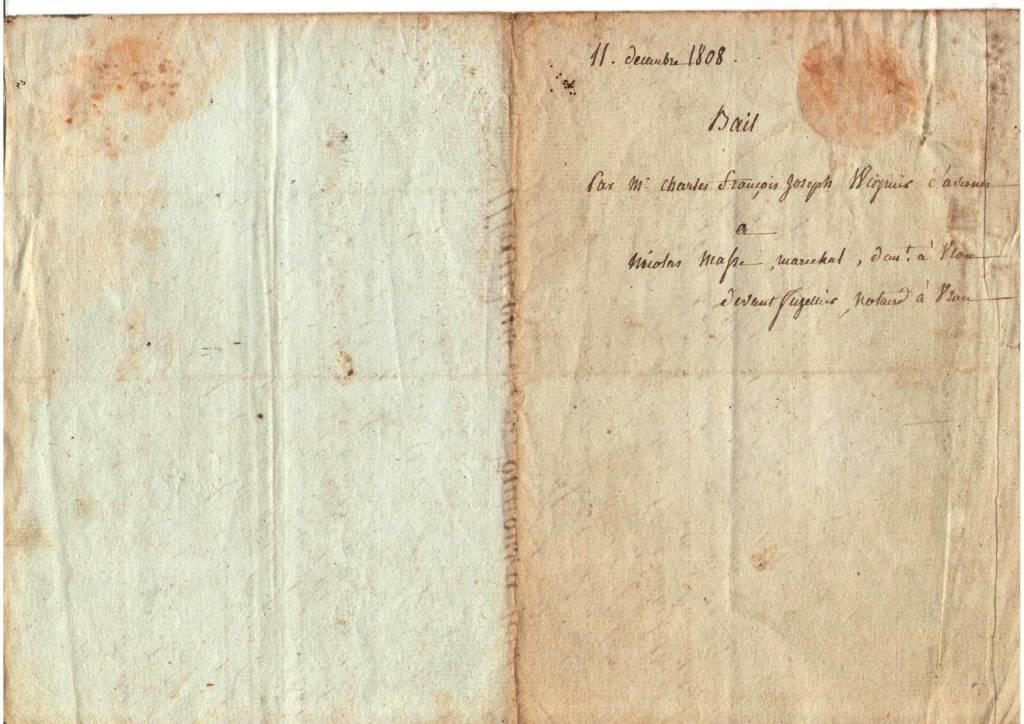 11. decembre 1808.
Bail
Par Mr. Charles françois Joseph Wignier d'avesnes
a
Nicolas Masse, marechal, demt. à Vron
devant, notaire à Vron